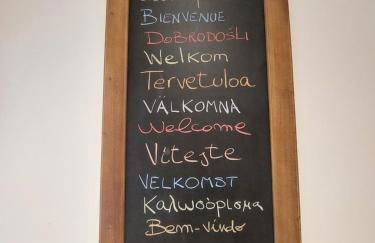 BIENVENUE
DOBRODOŠLI
Welkom
Tervetuloa
VÄLKOMNA
Welcome
Vítejte
VELKOMST
Καλωσόρισμα
Bem-vindo